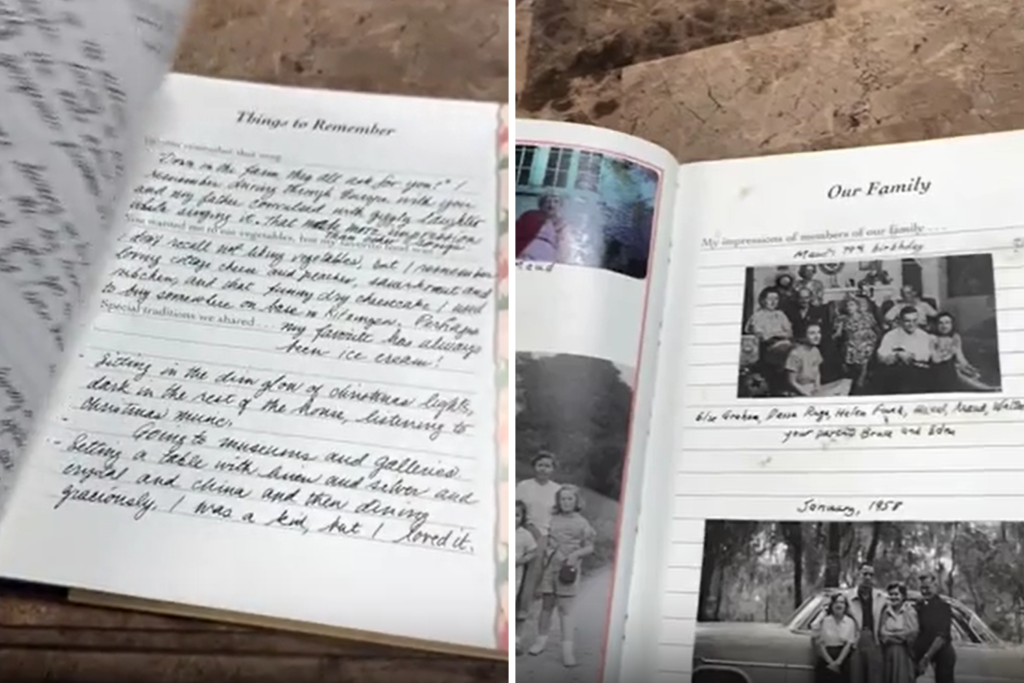 Things to Remember
"Down on the farm they all ask for you?" I
remember driving through Europe with you
and my father convulsed with giggly laughter
while singing it. That made more impression
You wanted me to eat vegetables, but my favorite
I don't recall not liking vegetables, but I remember
loving cottage cheese and peaches, sauerkraut and
and that funny dry cheesecake I used
to buy somewhere on base in Kitzingen. Perhaps
Special traditions we shared . . . my favorite has always
been ice cream!
- Sitting in the dim glow of christmas lights,
dark in the rest of the house, listening to
christmas music.
- Going to museums and galleries
- Setting a table with linen and silver and
crystal and china and then dining
graciously. I was a kid, but I loved it.
Maud
Our Family
My impressions of members of our family . . .
Maud's 79th birthday
Graham, Helen Maud,
your parents Bruce and
January, 1958